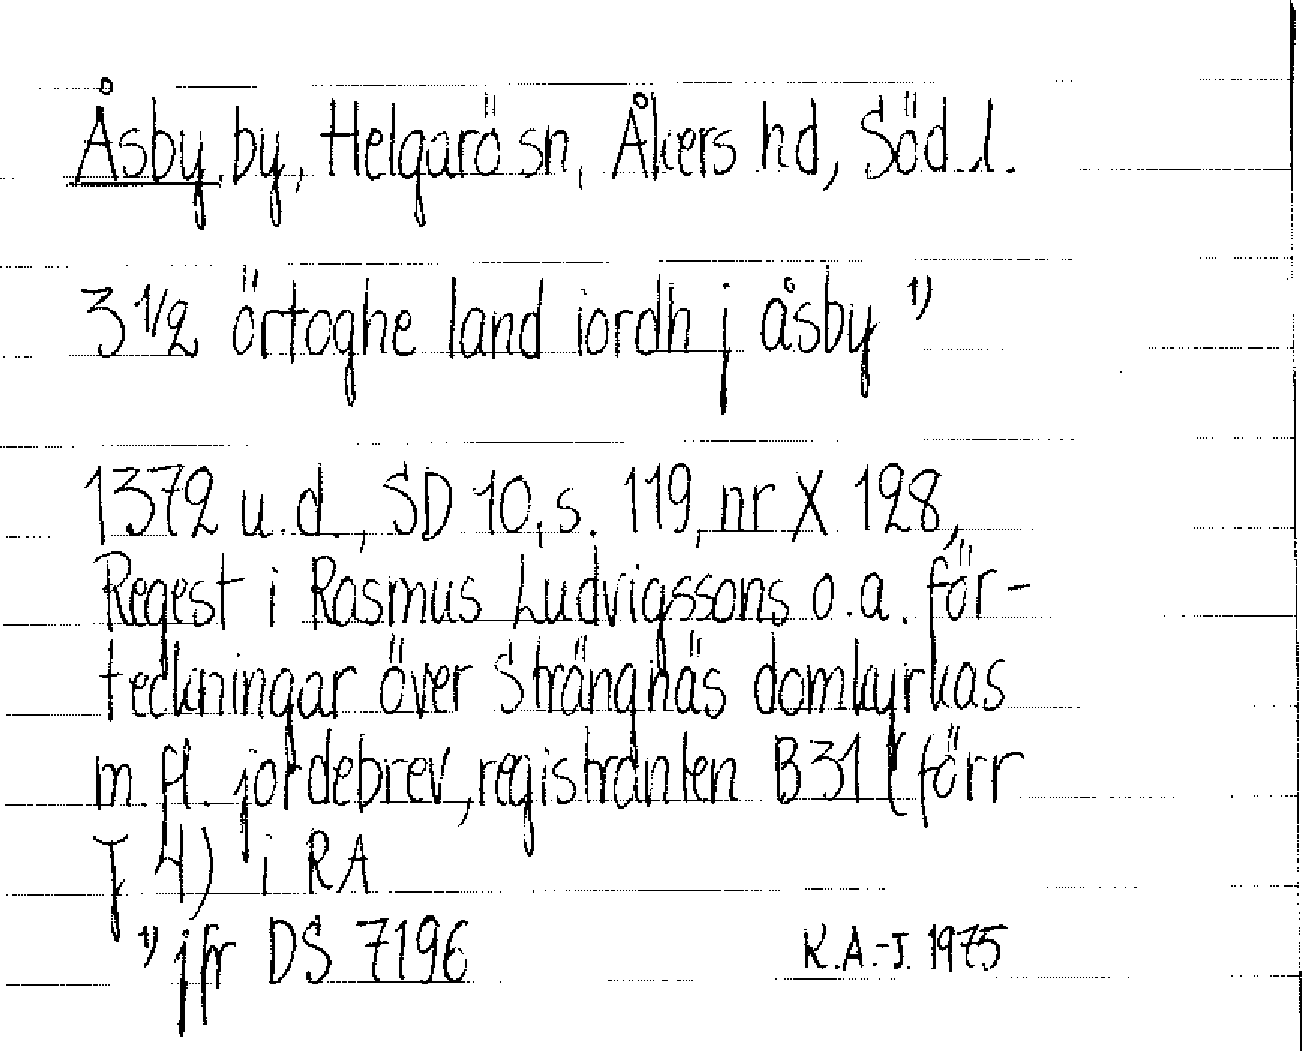 Åsby by, Helgarö sn, Åkers hd, Söd.l.
3 1/2 örtoghe land iordh j åsby 1)
1372 u.d., SD 10, s. 119, nr X 128,
Regest i Rasmus Ludvigssons o.a. för-
teckningar över Strängnäs domkyrkas
m.fl. jordebrev, registranten B31 (förr
J 4) i RA
1) jfr DS 7196
K.A.-J. 1975